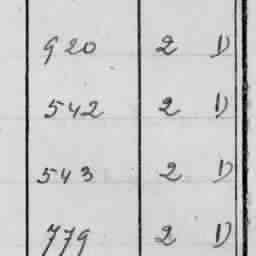 920 2 D
542 2 D
543 2 D
779 2 D